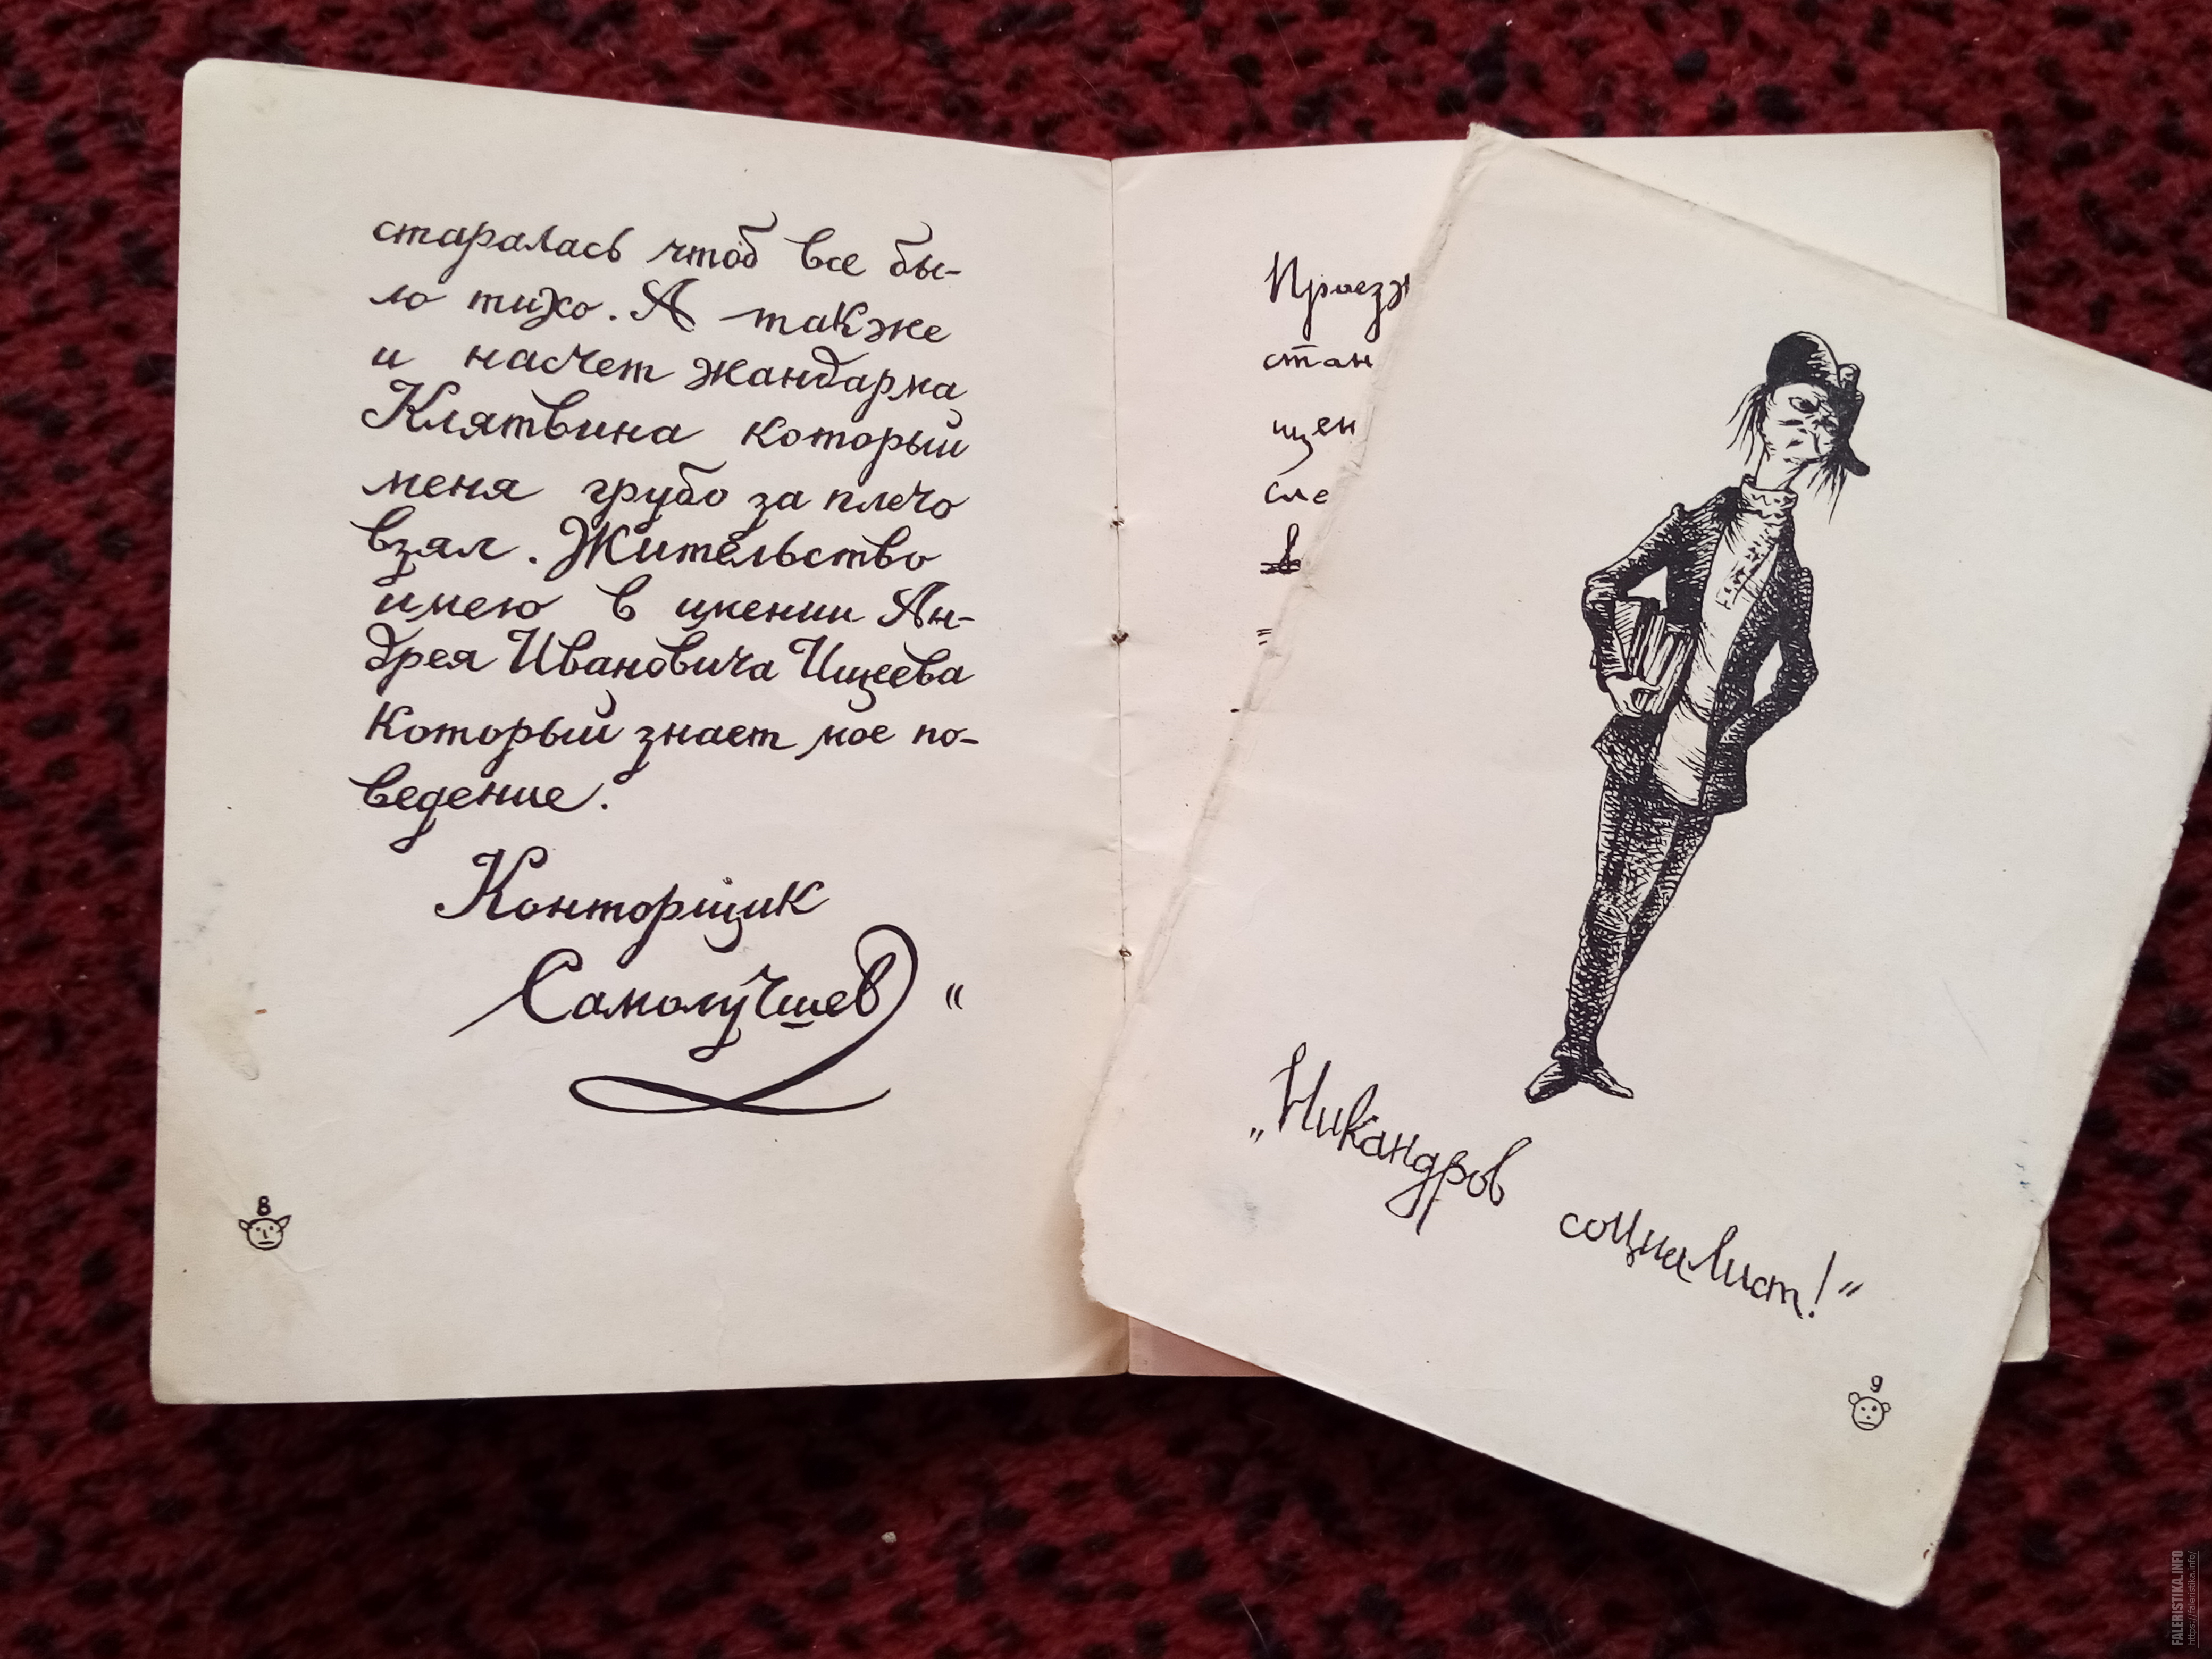 старалась чтоб все бы-
ло тихо. А также
и насчет жандарма
Клятвина который
меня грубо за плечо
взял. Жительство
имею в имении Ан-
дрея Ивановича Ищеева
который знает мое по-
ведение.
Конторщик
Самолучшев“
8
стан
щен
сле
„Никандров социалист!“
9
FALERISTIKA.INFO
https://faleristika.info/